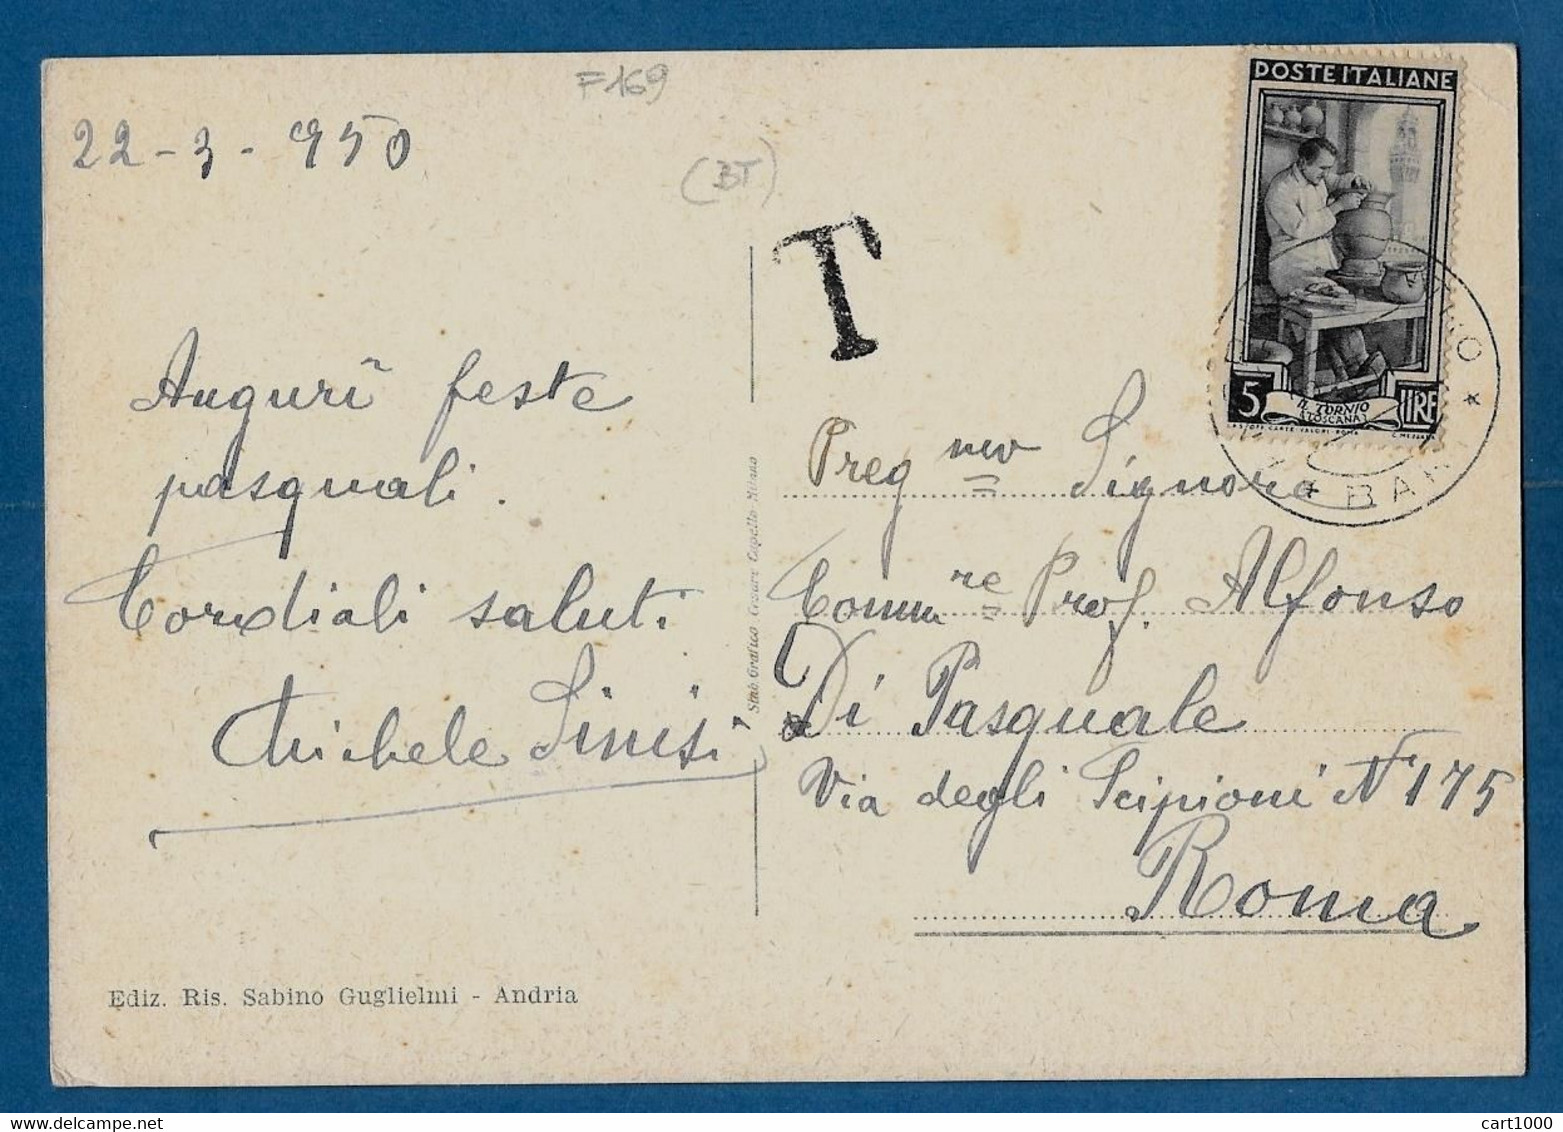 F169
22-3-950
(BT)
T
POSTE ITALIANE
5 LIRE
IL TORNIO
(TOSCANA)
BARI
Auguri feste
pasquali.
Cordiali saluti
Michele Sinisi
Stab. Grafico Cesare Capello-Milano
Preg mo Signore
Comm re Prof. Alfonso
Di Pasquale
Via degli Scipioni N° 175
Roma
Ediz. Ris. Sabino Guglielmi - Andria
cart1000